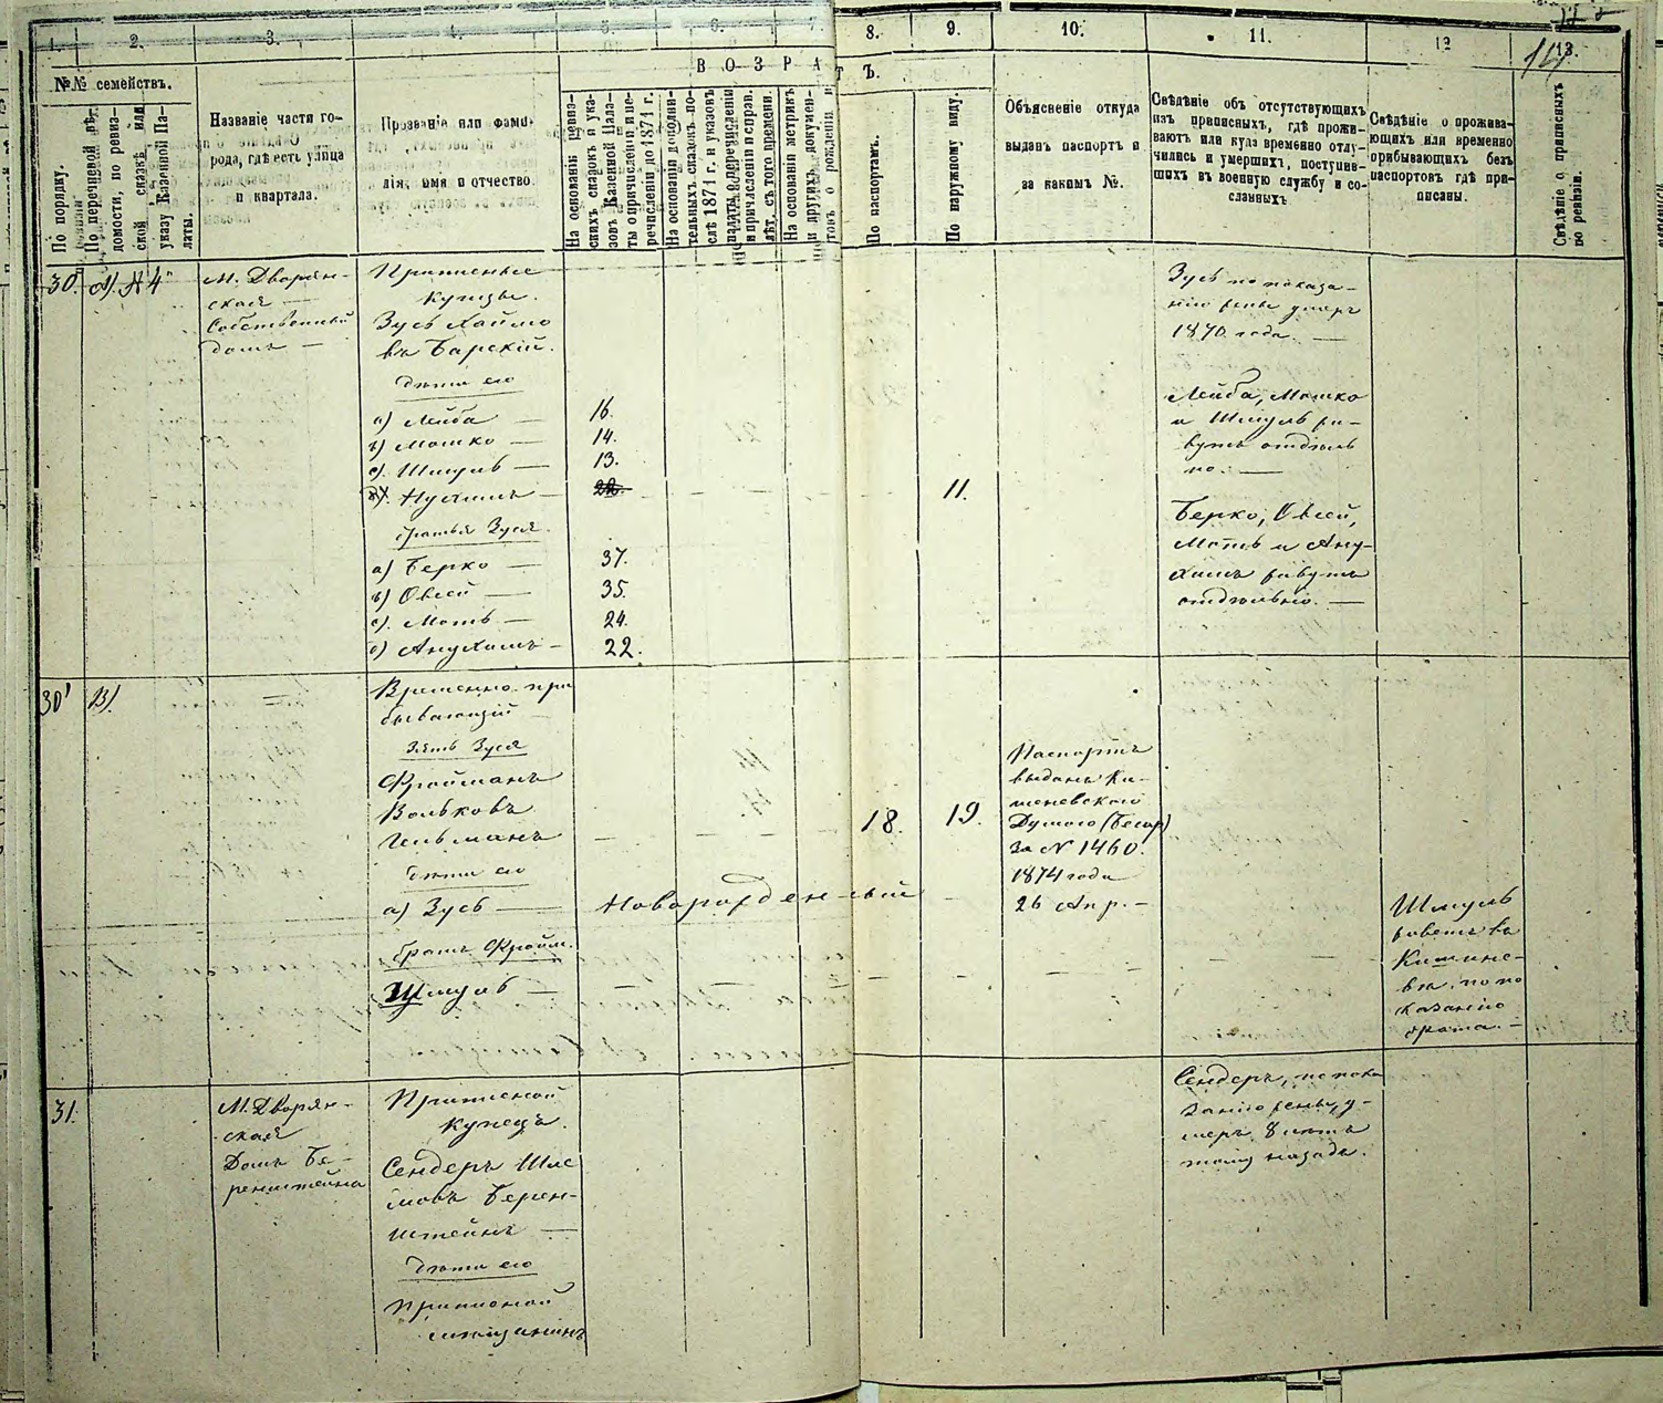 1. 2. 3. 4. 5. 6. 7. 8. 9. 10. 11. 12 13.
В О З Р А Т Ъ.
№№ семействъ.
По порядку.
По перечневой вѣ-
домости, по ревиз-
ской сказкѣ или
указу Казенной Па-
латы.
Названіе части го-
рода, гдѣ есть улица
и квартала.
Прозваніе или фами-
лія, имя и отчество.
На основаніи ревиз-
скихъ сказокъ и ука-
зовъ Казенной Пала-
ты о причисленіи и пе-
речисленіи до 1871 г.
На основаніи дополни-
тельныхъ сказокъ по-
слѣ 1871 г. и указовъ
палаты о перечисленіи
и причисленіи и справ.
лѣт. съ того времени.
На основаніи метрикъ
и другихъ докумен-
товъ о рожденіи и
По паспортамъ.
По наружному виду.
Объясненіе откуда
выданъ паспортъ и
за какимъ №.
Свѣдѣніе объ отсутствующихъ
изъ приписныхъ, гдѣ прожи-
ваютъ или куда временно отлу-
чились и умершихъ, поступив-
шихъ въ военную службу и со-
сланныхъ
Свѣдѣніе о прожива-
ющихъ или временно
прибывающихъ безъ
паспортовъ гдѣ при-
писаны.
Свѣдѣніе о приписныхъ
по ревизіи.
30. А). № 4
М. Дворян-
ская —
Собственный
домъ —
Приписные
купцы.
Зусь Хаймо
въ Барскій.
дѣти его
а) Лейба — 16.
b) Мошко — 14.
c). Шмуль — 13.
d). Нухимъ — 22. 11.
братья Зуся.
а) Берко — 37.
b) Овсей — 35.
c). Мотъ — 24.
d) Анухимъ — 22.
Зусь по показа-
нію жены умеръ
1870 года. —
Лейба, Мошко
и Шмуль жи-
вутъ отдѣль
но. —
Берко, Овсей,
Моть и Ану-
химъ живутъ
отдѣльно. —
30' В).
Временно при
бывающій
Зять Зуся
Фройманъ
Вольковъ
Гельманъ 18. 19.
дѣти его
а) Зусь — Новорожденный
братъ Фройм.
Шмуль —
Паспортъ
выданъ Ки-
шеневскою
Думою (Бесар)
За № 1460.
1874 года
26 Апр. —
Шмуль
живетъ въ
Кишине-
вѣ, по по
казанію
брата. —
31.
М. Дворян-
ская
Домъ Бе-
ренштейна
Приписной
купецъ.
Сендеръ Шле
мовъ Берен-
штейнъ —
дѣти его
Приписной
мѣщанинъ
Сендеръ, по пока
занію жены, у-
меръ 8 лѣтъ
тому назадъ.